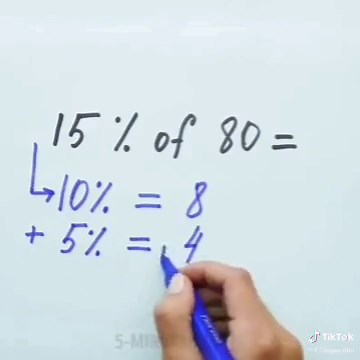 15% of 80 =
10% = 8
+ 5% = 4
TikTok